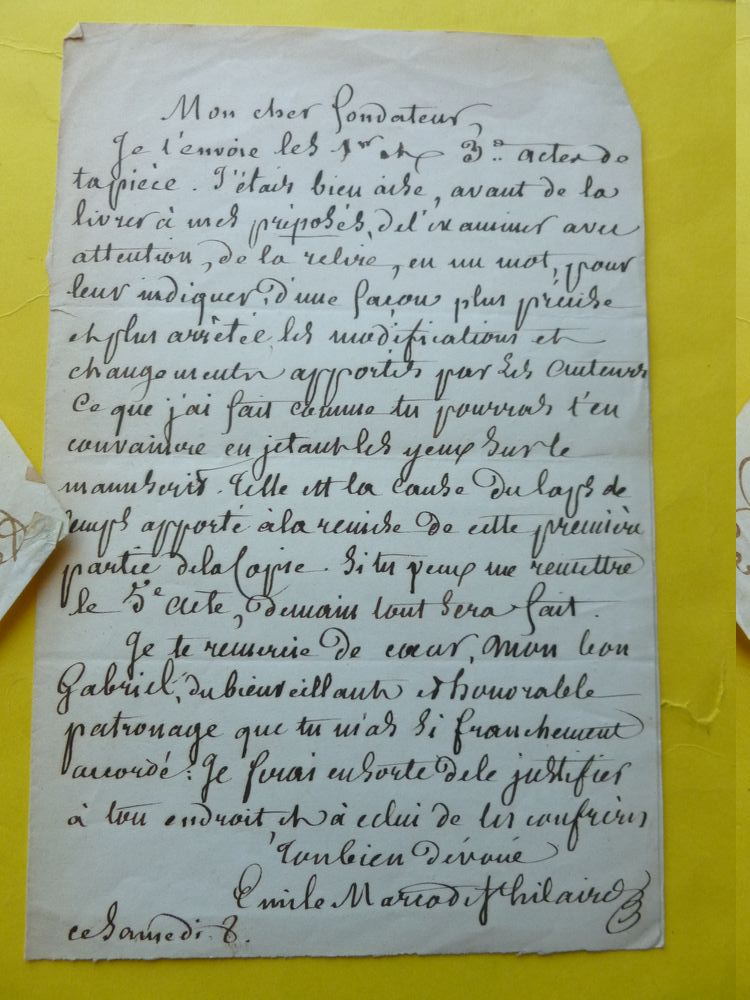 Mon cher fondateur,
Je t'envoie les 1er et 3e actes de
ta pièce. J'étais bien aise, avant de la
livrer à mes préposés, de l'examiner avec
attention, de la relire, en un mot, pour
leur indiquer, d'une façon plus précise
et plus arrêtée les modifications et
changements apportés par les auteurs
Ce que j'ai fait comme tu pourras t'en
convaincre en jetant les yeux sur le
manuscrit. Telle est la cause du laps de
temps apporté à la remise de cette première
partie de la Copie. Si tu peux me remettre
le 5e acte, demain tout sera fait.
Je te remercie de cœur, mon bon
Gabriel, du bienveillant et honorable
patronage que tu m'as si franchement
accordé: Je ferai en sorte de le justifier
à ton endroit et à celui de tes confrères
Ton bien dévoué
Emile Marco de St hilaire
ce Samedi 8.